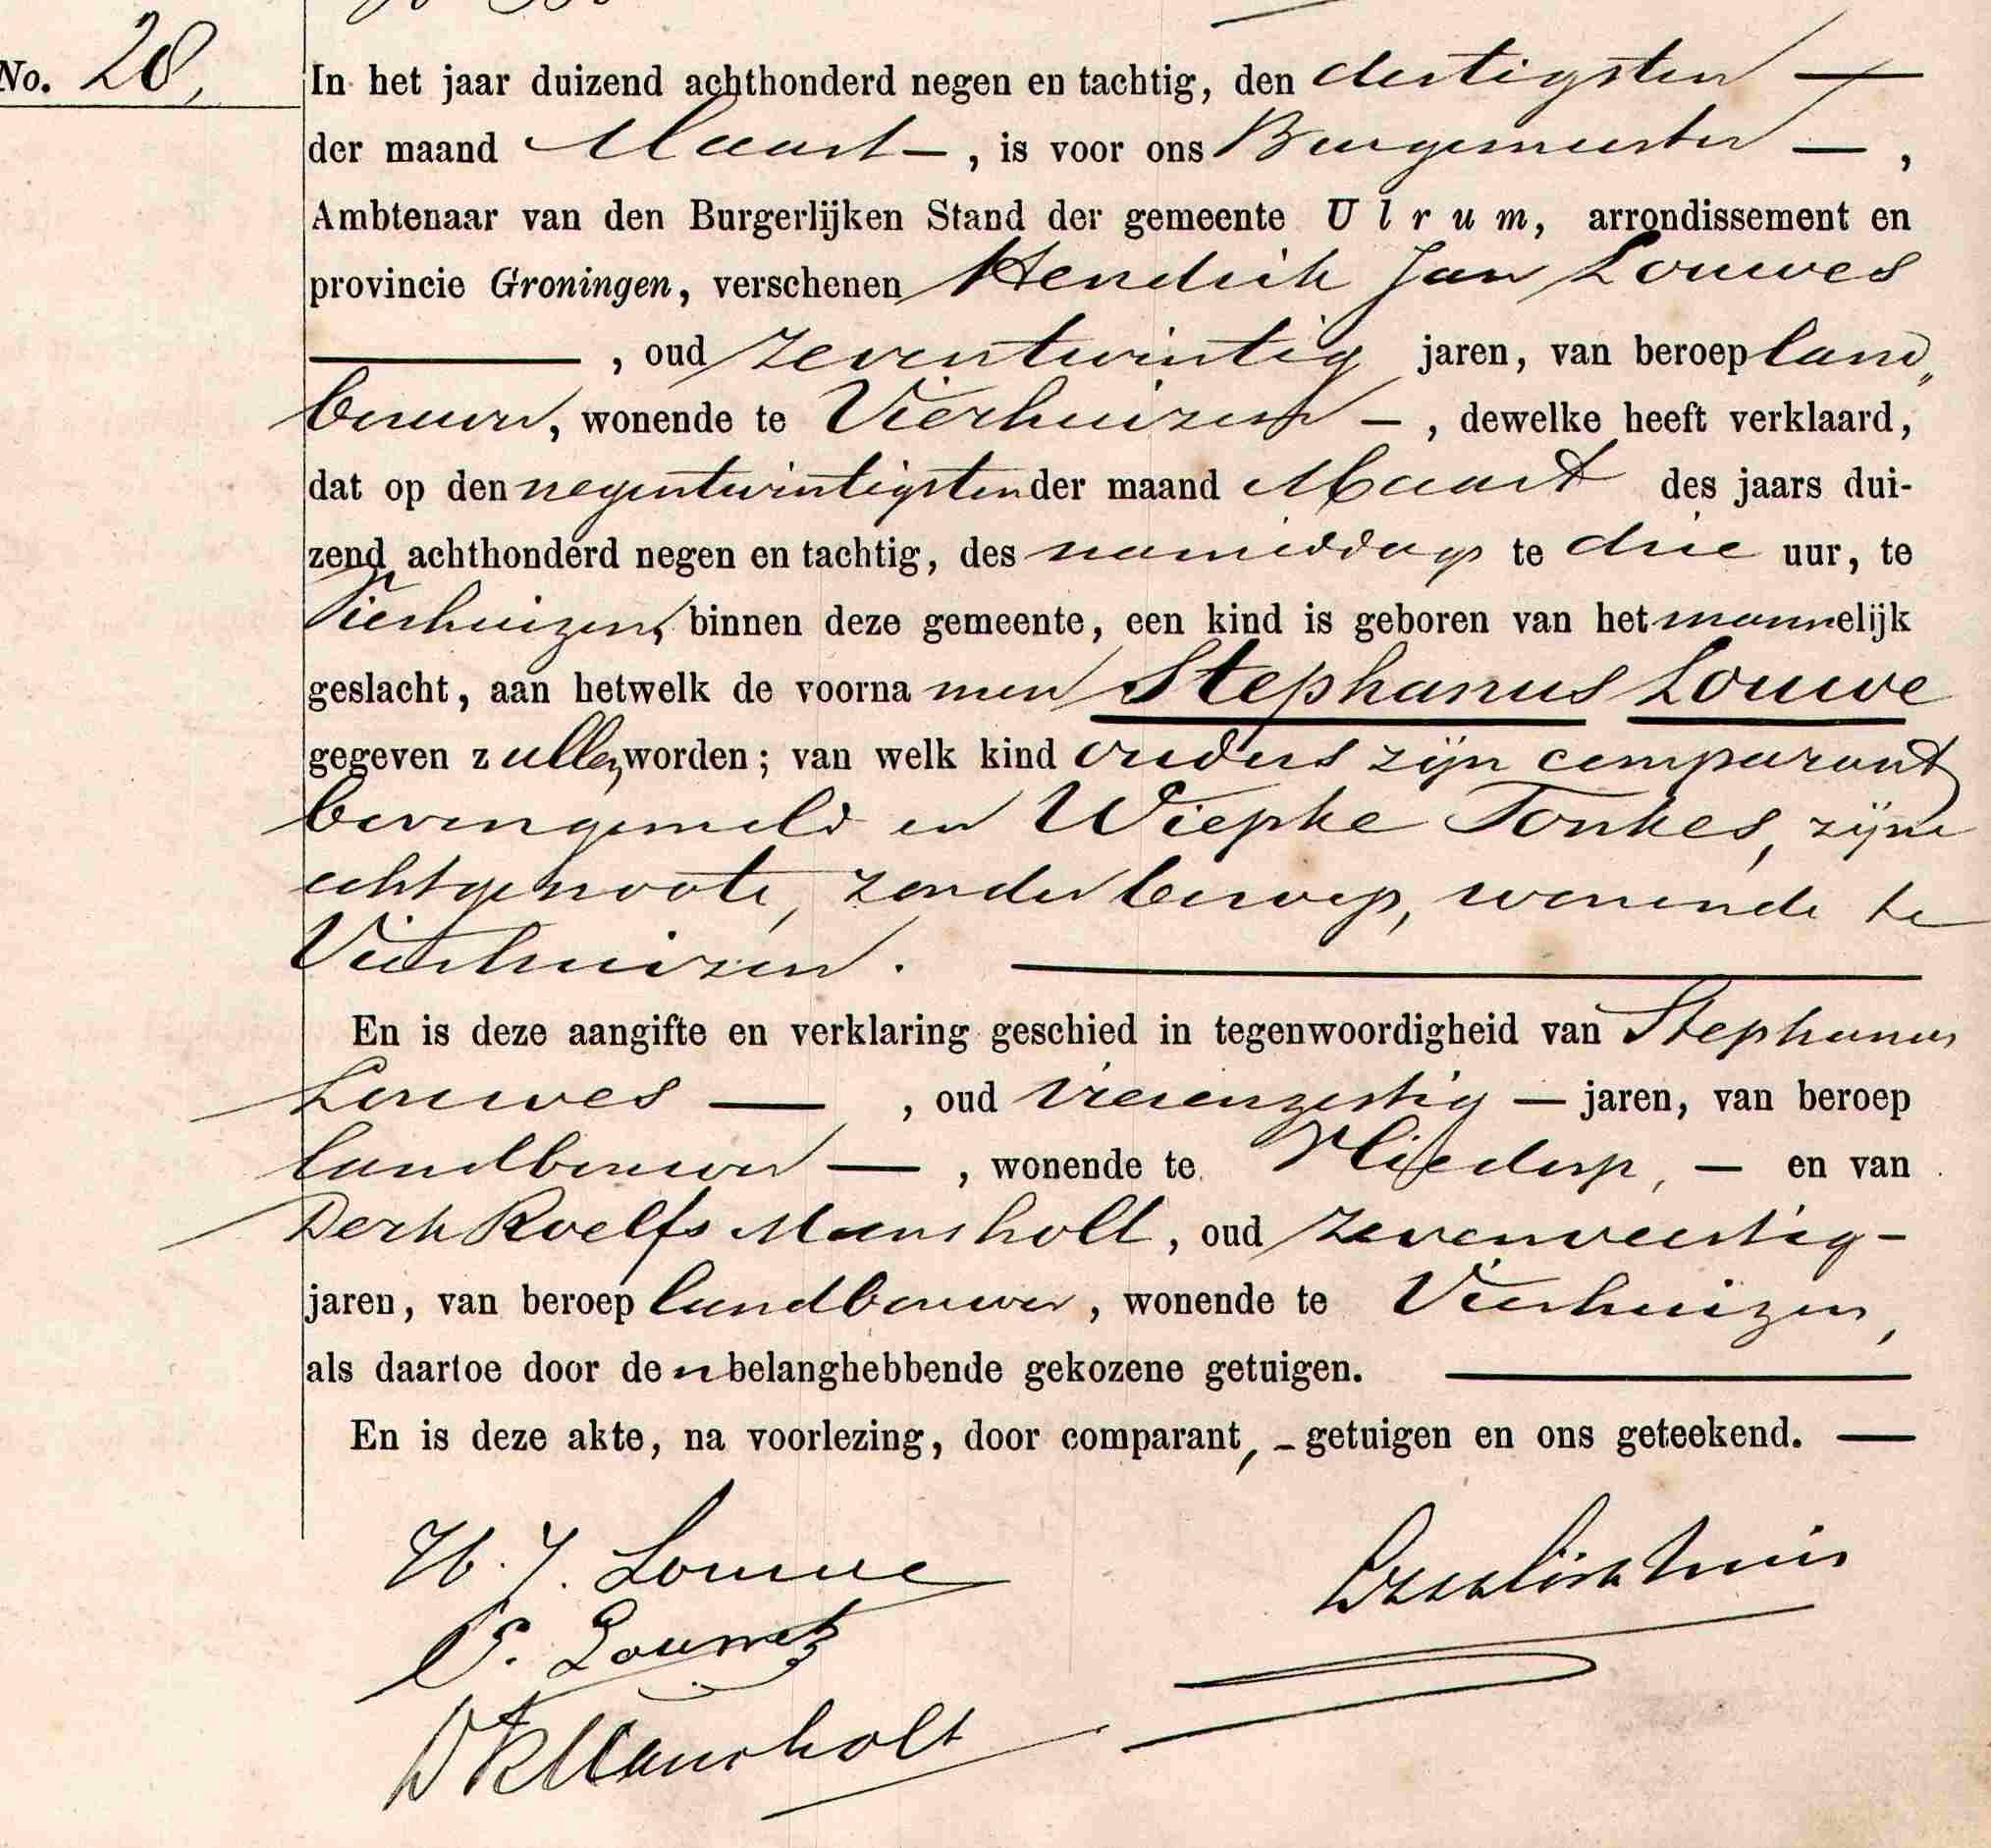 No. 28,
In het jaar duizend achthonderd negen en tachtig, den dertigsten —
der maand Maart —, is voor ons Burgemeester —,
Ambtenaar van den Burgerlijken Stand der gemeente Ulrum, arrondissement en
provincie Groningen, verschenen Hendrik Jan Louwes
—, oud zeventwintig jaren, van beroep land„
bouwer, wonende te Vierhuizen —, dewelke heeft verklaard,
dat op den negentwintigsten der maand Maart des jaars dui-
zend achthonderd negen en tachtig, des namiddags te drie uur, te
Vierhuizen, binnen deze gemeente, een kind is geboren van het mannelijk
geslacht, aan hetwelk de voornamen Stephanus Louwe
gegeven zullen worden; van welk kind ouders zijn comparant
bovengemeld en Wiepke Tonkes, zijne
echtgenoote, zonder beroep, wonende te
Vierhuizen. —
En is deze aangifte en verklaring geschied in tegenwoordigheid van Stephanus
Louwes —, oud vierenzestig — jaren, van beroep
landbouwer —, wonende te Vliedorp, — en van
Derk Roelfs Mansholt, oud zevenveertig -
jaren, van beroep landbouwer, wonende te Vierhuizen,
als daartoe door den belanghebbende gekozene getuigen. —
En is deze akte, na voorlezing, door comparant, - getuigen en ons geteekend. —
H. J. Louwe
S. Louwes
DR Mansholt